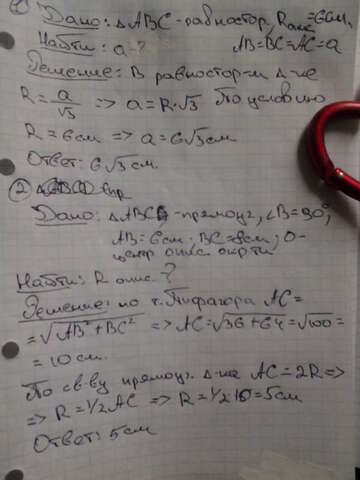 ① Дано: △ABC - равностор, Rопис = 6см.
Найти: a? AB=BC=AC=a
Решение: В равностор-м △-ке
R = a/√3 => a=R·√3 По условию
R = 6см => a = 6√3см
Ответ: 6√3 см.
②
Дано: △ABC - прямоуг, ∠B=90°,
AB=6см; BC=8см; O-
центр опис окр-ти
Найти: R опис?
Решение: по т. Пифагора AC=
=√AB²+BC² => AC=√36+64=√100=
=10см.
По св-ву прямоуг. △-ка AC=2R=>
=> R=1/2AC => R=1/2·10=5см
Ответ: 5см